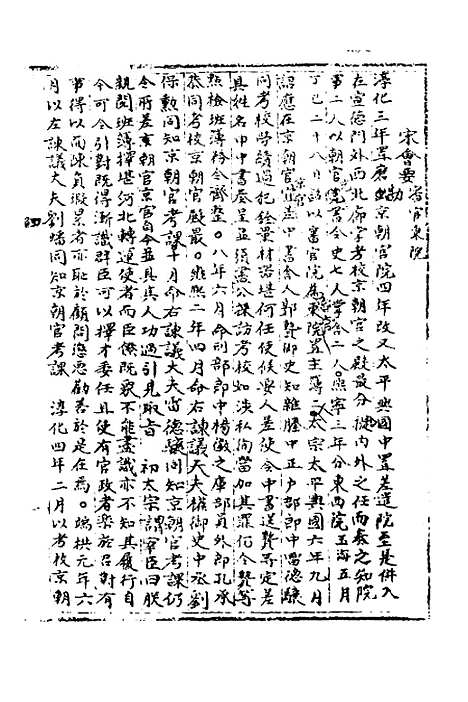 宋會要 審官東院
淳化三年置磨勘京朝官院四年改又太平興國中置差遣院至是併入
在宣德門外西北廊掌考校京朝官之殿最分擬內外之任而奏之知院
事二人以朝官充書令史七人掌舍二人熙寧三年分東西院玉海五月
丁巳二十八日詔以審官院為東院置主簿 太宗太平興國六年九月
詔應在京朝官宜令中書舍人郭贄御史知雜滕中正戶部郎中雷德驤
同考校學績過犯銓量材器堪何任使候要人差使令中書送贄等定差
具姓名申中書本房至並須盡公採訪考校如涉私徇當加其罪仍令贄等
點檢班簿條令齊整○八年六月命刑部郎中楊徽之庫部員外郎孔承
恭同考校京朝官殿最○雍熙二年四月命右諫議大夫權御史中丞劉
保勳同知京朝官考課十月命右諫議大夫雷德驤同知京朝官考課仍
令所差京朝官京官自今並具真人功過引見取旨 初太宗謂宰臣曰朕
親閱班簿擇堪河北轉運使者而臣僚既衆不能盡識亦不知其履行自
今可令引對既得漸識群臣可以擇才委任且使有官政者樂於召對有
事得以而陳負瑕累者亦恥於顧問懲惡勸善於是在焉○端拱元年六
月以左諫議大夫劉蟠同知京朝官考課 淳化四年二月以考校京朝